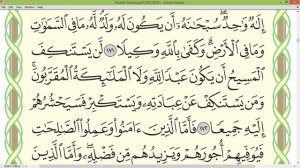 إِلَٰهٌ وَٰحِدٌ سُبْحَٰنَهُۥٓ أَن يَكُونَ لَهُۥ وَلَدٌ لَّهُۥ مَا فِى ٱلسَّمَٰوَٰتِ
وَمَا فِى ٱلْأَرْضِ وَكَفَىٰ بِٱللَّهِ وَكِيلًا ١٧١ لَّن يَسْتَنكِفَ
ٱلْمَسِيحُ أَن يَكُونَ عَبْدًا لِّلَّهِ وَلَا ٱلْمَلَٰٓئِكَةُ ٱلْمُقَرَّبُونَ
وَمَن يَسْتَنكِفْ عَنْ عِبَادَتِهِۦ وَيَسْتَكْبِرْ فَسَيَحْشُرُهُمْ
إِلَيْهِ جَمِيعًا ١٧٢ فَأَمَّا ٱلَّذِينَ ءَامَنُوا۟ وَعَمِلُوا۟ ٱلصَّٰلِحَٰتِ
فَيُوَفِّيهِمْ أُجُورَهُمْ وَيَزِيدُهُم مِّن فَضْلِهِۦ وَأَمَّا ٱلَّذِينَ